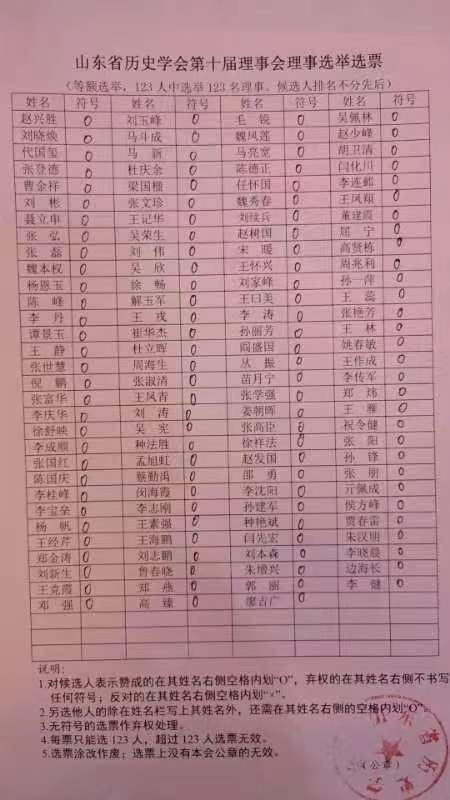 山东省历史学会第十届理事会理事选举选票
（等额选举，123人中选举123名理事。候选人排名不分先后）
姓名 符号 姓名 符号 姓名 符号 姓名 符号
赵兴胜 O 刘玉峰 O 毛锐 O 吴佩林 O
刘晓焕 O 马斗成 O 魏凤莲 O 赵少峰 O
代国玺 O 马新 O 马亮宽 O 胡卫清 O
张登德 O 杜庆余 O 陈德正 O 闫化川 O
曹金祥 O 梁国楹 O 任怀国 O 李连鲲 O
刘彬 O 张文珍 O 魏秀春 O 王凤翔 O
聂立申 O 王记华 O 刘续兵 O 董建霞 O
张弘 O 吴荣生 O 赵树国 O 屈宁 O
张磊 O 刘伟 O 宋暖 O 高贤栋 O
魏本权 O 吴欣 O 王怀兴 O 周兆利 O
杨恩玉 O 徐畅 O 刘家峰 O 孙一萍 O
陈峰 O 解玉军 O 王曰美 O 王蕊 O
李丹 O 王戎 O 李涛 O 张艳芳 O
谭景玉 O 崔华杰 O 孙丽芳 O 王林 O
王静 O 杜立晖 O 阎盛国 O 姚春敏 O
张世慧 O 周海生 O 丛振 O 王作成 O
倪鹏 O 张淑清 O 苗月宁 O 李传军 O
张富华 O 王凤青 O 张学强 O 郑炜 O
李庆华 O 刘涛 O 姜朝晖 O 王雁 O
徐舒映 O 吴宪 O 张高臣 O 祝令健 O
李成顺 O 种法胜 O 徐祥法 O 张阳 O
张国红 O 孟旭虹 O 赵发国 O 孙锋 O
陈国庆 O 蔡勤禹 O 邵勇 O 张朋 O
李桂峰 O 闵海霞 O 李沈阳 O 亓佩成 O
李宝垒 O 李志刚 O 孙建军 O 侯方峰 O
杨帆 O 王素强 O 种艳斌 O 贾春雷 O
王经芹 O 王海鹏 O 闫先宏 O 朱汉明 O
郑金涛 O 刘志鹏 O 刘本森 O 李晓晨 O
刘新生 O 鲁春晓 O 朱增兴 O 边海长 O
王克霞 O 郑燕 O 郭丽 O 李健 O
邓强 O 高臻 O 廖吉广 O
说明：
1.对候选人表示赞成的在其姓名右侧空格内划“O”，弃权的在其姓名右侧不书写
任何符号；反对的在其姓名右侧空格内划“×”。
2.另选他人的除在姓名栏写上其姓名外，还需在其姓名右侧的空格内划“O”
3.无符号的选票作弃权处理。
4.每票只能选123人，超过123人选票无效。
5.选票涂改作废；选票上没有本会公章的无效。
（公章）